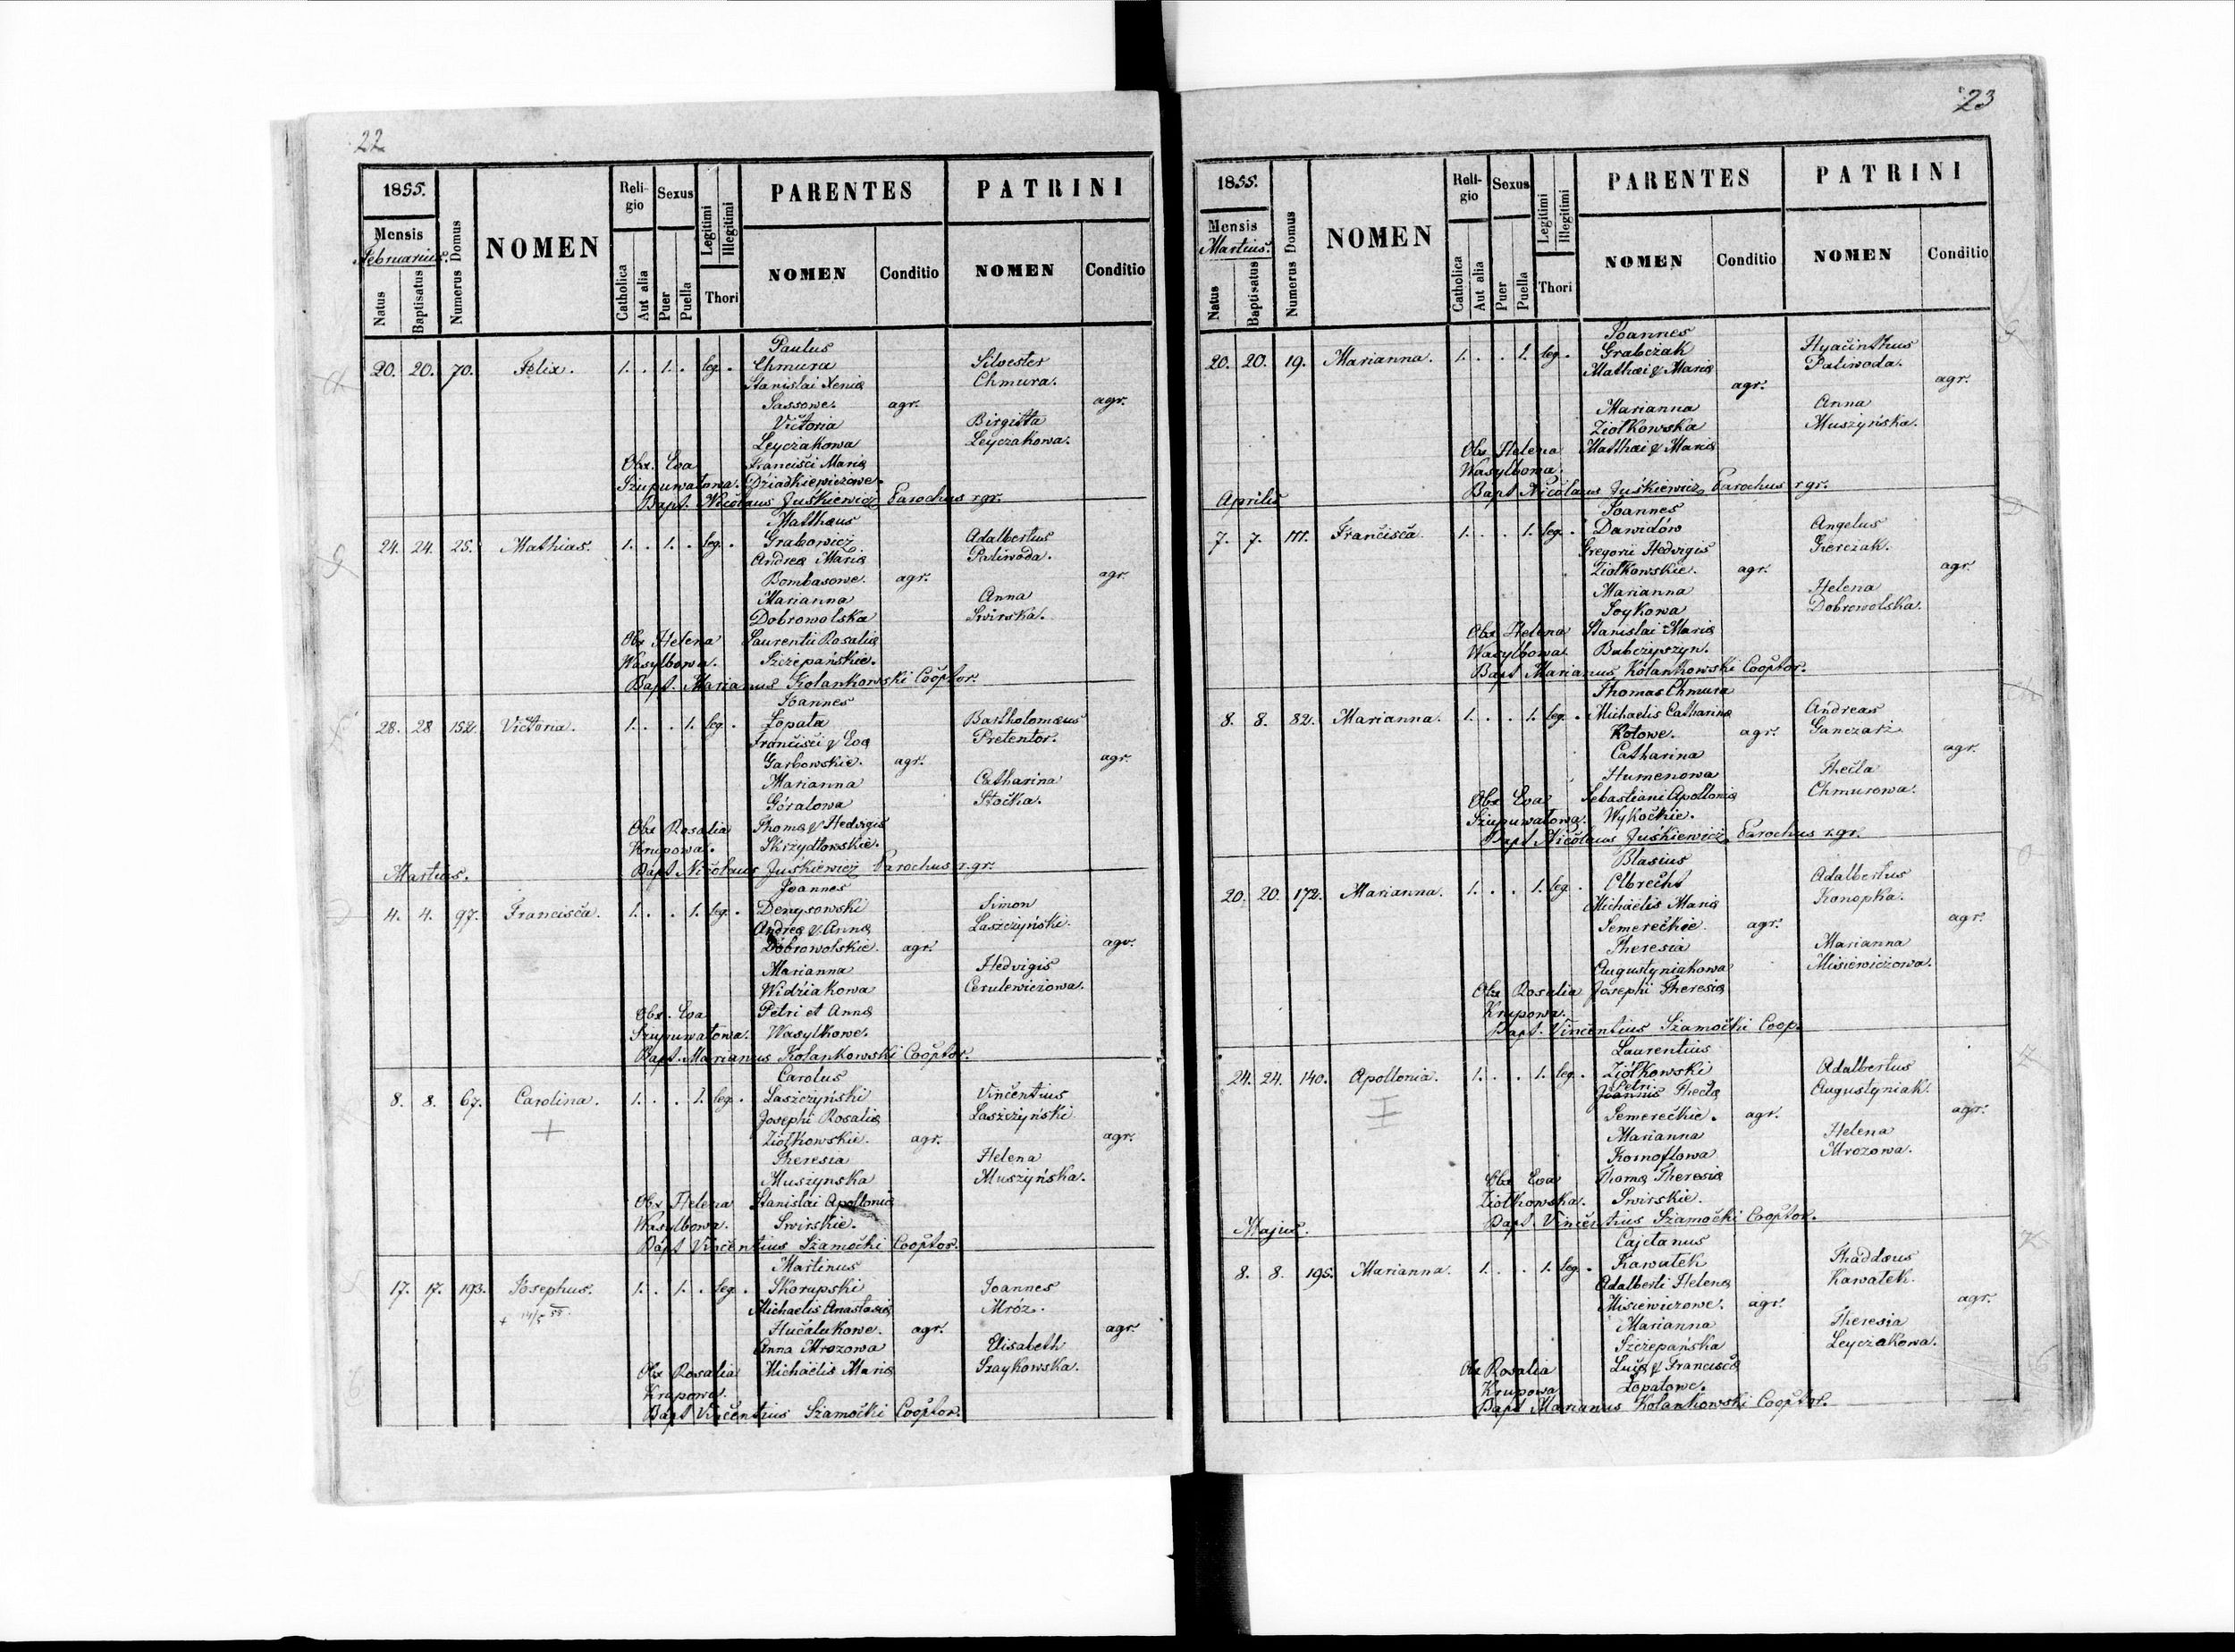 22
1855.
Mensis
Februarius.
Natus
Baptisatus
Numerus Domus
NOMEN
Reli-
gio
Catholica
Aut alia
Sexus
Puer
Puella
Legitimi
Illegitimi
Thori
PARENTES
NOMEN
Conditio
PATRINI
NOMEN
Conditio
Paulus
20. 20. 70. Felix. 1. . 1. . leg. . Chmura Silvester
Stanislai Xeniæ Chmura.
Sassowe. agr. agr.
Victoria Birgitta
Leyczakowa Leyczakowa.
Obx. Eva Francisci Mariæ
Szupuwatowa. Dziadkiewiczowe.
Bapt. Nicolaus Juśkiewicz Parochus r. gr.
Matthæus
24. 24. 25. Mathias. 1. . 1. . leg. . Grabowicz Adalbertus
Andreæ Mariæ Paliwoda.
Bombasowe. agr. agr.
Marianna Anna
Dobrowolska Swirska.
Obx Helena Laurentii Rosaliæ
Wasylbowa. Szczepańskie.
Bapt. Marianus Kolankowski Cooptor.
Joannes
28. 28 152. Victoria. 1. . . 1. leg. . Łopata Bartholomæus
Francisci & Evæ Pretentor.
Garbowskie. agr. agr.
Marianna Catharina
Góralowa Stocka.
Obx Rosalia Thomæ & Hedvigis
Krupowa. Skrzydłowskie.
Bapt. Nicolaus Juśkiewicz Parochus r. gr.
Martius.
Joannes
4. 4. 97. Francisca. 1. . . 1. leg. . Denysowski Simon
Andreæ & Annæ Laszczyński.
Dobrowolskie. agr. agr.
Marianna Hedvigis
Widziakowa Cerulewiczowa.
Obx. Eva Petri et Annæ
Szupuwatowa. Wasylkowe.
Bapt. Marianus Kolankowski Cooptor.
Carolus
8. 8. 67. Carolina. 1. . . 1. leg. . Laszczyński Vincentius
Josephi Rosaliæ Laszczyński
Ziołkowskie. agr. agr.
Theresia Helena
Muszynska Muszyńska.
Obx Helena Stanislai Apolloniæ
Wasylbowa. Swirskie.
Bapt Vincentius Szamocki Cooptor.
Martinus
17. 17. 193. Josephus. 1. . 1. . leg. . Skorupski Joannes
+ 14/5 55. Michaelis Anastasiæ Mróz.
Hucalukowe. agr. agr.
Anna Mrozowa Elisabeth
Obx Rosalia Michaëlis Mariæ Szaykowska.
Krupowa.
Bapt Vincentius Szamocki Cooptor.
23
1855.
Mensis
Martius.
Natus
Baptisatus
Numerus Domus
NOMEN
Reli-
gio
Catholica
Aut alia
Sexus
Puer
Puella
Legitimi
Illegitimi
Thori
PARENTES
NOMEN
Conditio
PATRINI
NOMEN
Conditio
Joannes
20. 20. 19. Marianna. 1. . . 1. leg. . Grabczak Hyacinthus
Mathæi & Mariæ Paliwoda.
agr. agr.
Marianna Anna
Ziołkowska Muszyńska.
Obx Helena Matthæi & Mariæ
Wasylbowa.
Bapt Nicolaus Juśkiewicz Parochus r gr.
Aprilis
Joannes
7. 7. 111. Francisca. 1. . . 1. leg. . Dawidów Angelus
Gregorii Hedvigis
Ziołkowskie. agr. agr.
Marianna Helena
Soykowa Dobrowolska.
Obx Helena Stanislai Mariæ
Wasylbowa. Babczyszyn.
Bapt Marianus Kolankowski Cooptor.
Thomas Chmura
8. 8. 82. Marianna. 1. . . 1. leg. . Michaelis Catharinæ Andreas
Kotowe. agr. Ganczarz
Catharina agr.
Humenowa Thecla
Obx Eva Sebastiani Apolloniæ Chmurowa.
Szupuwatowa. Wykockie.
Bapt Nicolaus Juśkiewicz Parochus r. gr.
Blasius
20. 20. 172. Marianna. 1. . . 1. leg. . Olbrecht Adalbertus
Michaëlis Mariæ Konopka.
Semereckie. agr. agr.
Theresia Marianna
Augustyniakowa Misiewiczowa.
Obx Rosalia Josephi Theresiæ
Krupowa.
Bapt. Vincentius Szamocki Coop.
Laurentius
24. 24. 140. Apollonia. 1. . . 1. leg. . Ziołkowski Adalbertus
Petri
Joannis Theclæ Augustyniak.
Semereckie. agr. agr.
Marianna Helena
Kornoflowa Mrozowa.
Obx Eva Thomæ Theresiæ
Ziołkowska. Swirskie.
Bapt. Vincentius Szamocki Cooptor.
Majus.
Cajetanus
8. 8. 195. Marianna. 1. . . 1. leg. . Kawatek Thaddæus
Adalberti Helenæ Kawatek.
Misiewiczowe. agr. agr.
Marianna Theresia
Szczepańska Leyczakowa.
Obx Rosalia Lucæ & Franciscæ
Krupowa Łopatowe.
Bapt Marianus Kolankowski Cooptor.